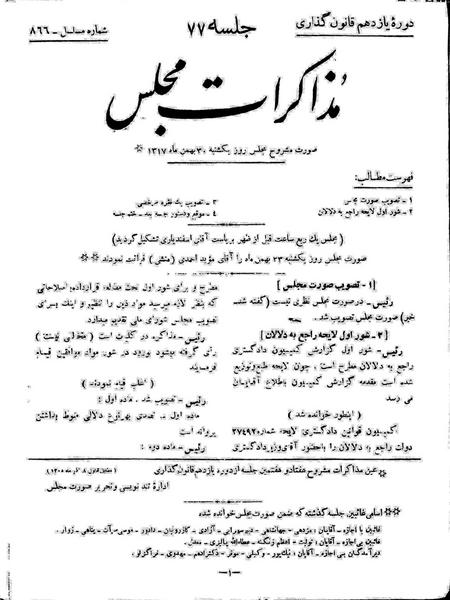 دورهٔ یازدهم قانون گذاری
جلسه ۷۷
شماره مسلسل - ۸۶۶
مذاکرات مجلس
صورت مشروح مجلس روز یکشنبه ۳۰ بهمن ماه ۱۳۱۷ *
فهرست مطالب:
۱ - تصویب صورت مجلس
۲ - شور اول لایحه راجع به دلالان
۳ - تصویب یک فقره مرخصی
۴ - موقع و دستور جلسه بعد - ختم جلسه
(مجلس یک ربع ساعت قبل از ظهر بریاست آقای اسفندیاری تشکیل گردید)
صورت مجلس روز یکشنبه ۲۳ بهمن ماه را آقای مؤید احمدی (منشی) قرائت نمودند **
[۱ - تصویب صورت مجلس]
رئیس - در صورت مجلس نظری نیست (گفته شد-
خیر) صورت مجلس تصویب شد.
[۲ - شور اول لایحه راجع به دلالان]
رئیس - شور اول گزارش کمیسیون دادگستری
راجع به دلالان مطرح است، چون لایحه طبع و توزیع
شده است مقدمه گزارش کمیسیون باطلاع آقایان
می رسد
(اینطور خوانده شد)
کمیسیون قوانین دادگستری لایحه شماره ۲۷۴۹۲
دولت راجع به دلالان را با حضور آقای وزیر دادگستری
مطرح و برای شور اول تحت مطالعه قرار داده اصلاحاتی
که بنظر لازم میرسید مواد ذیل را تنظیم و اینک برای
تصویب مجلس شورای ملی تقدیم میدارد.
رئیس - مذاکره در کلیات است (مخالفی نیست)
رأی گرفته میشود بورود در شور مواد موافقین قیام
فرمایند
(اغلب قیام نمودند)
رئیس - تصویب شد. ماده اول:
ماده اول - تصدی بهر نوع دلالی منوط بداشتن
پروانه است
رئیس - ماده دوم:
* عین مذاکرات مشروح هفتاد و هفتمین جلسه از دوره یازدهم قانون گذاری
اداره تند نویسی و تحریر صورت مجلس
** اسامی غائبین جلسه گذشته که ضمن صورت مجلس خوانده شده
غائبین با اجازه - آقایان:
غائبین بی اجازه - آقایان:
دیر آمدگان بی اجازه - آقایان:
-۱-